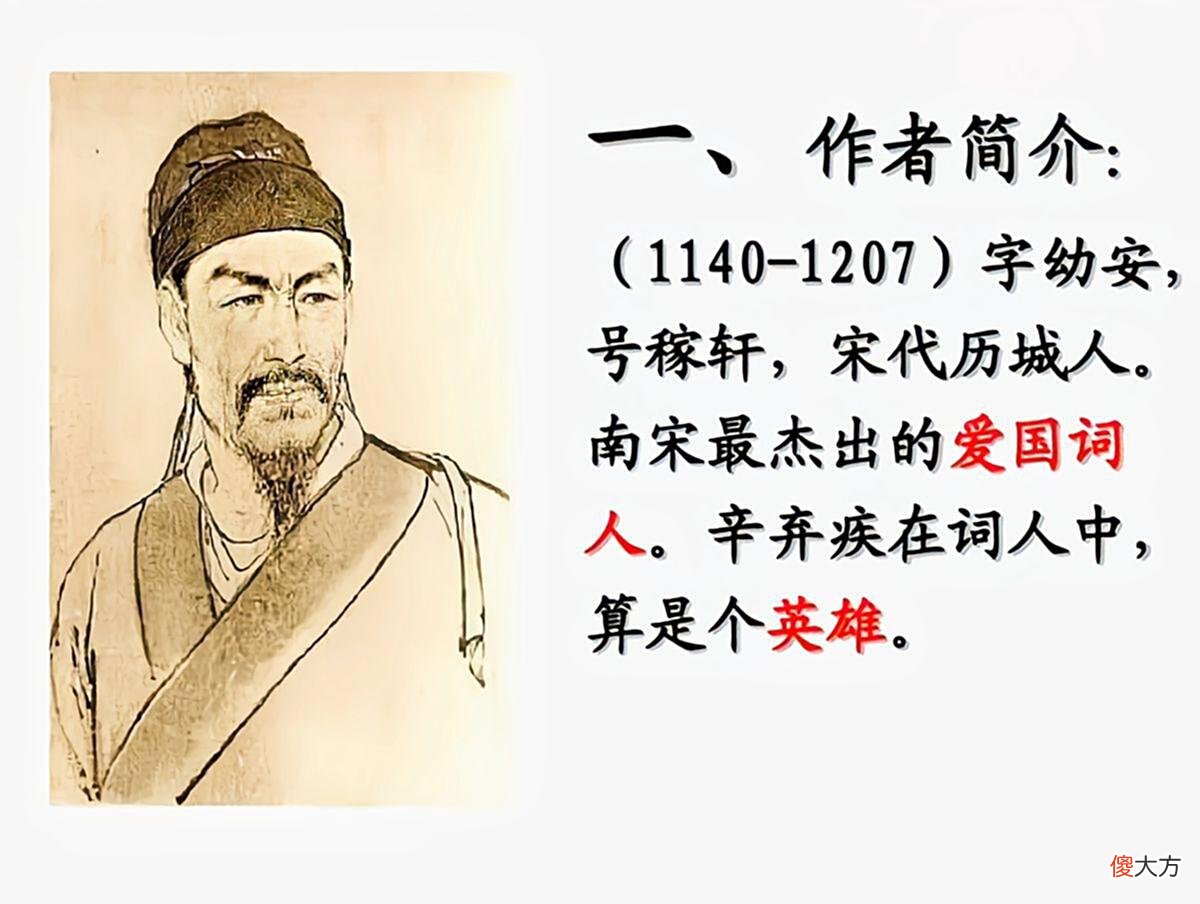 一、作者简介:
（1140-1207）字幼安，
号稼轩，宋代历城人。
南宋最杰出的爱国词
人。辛弃疾在词人中，
算是个英雄。
傻大方